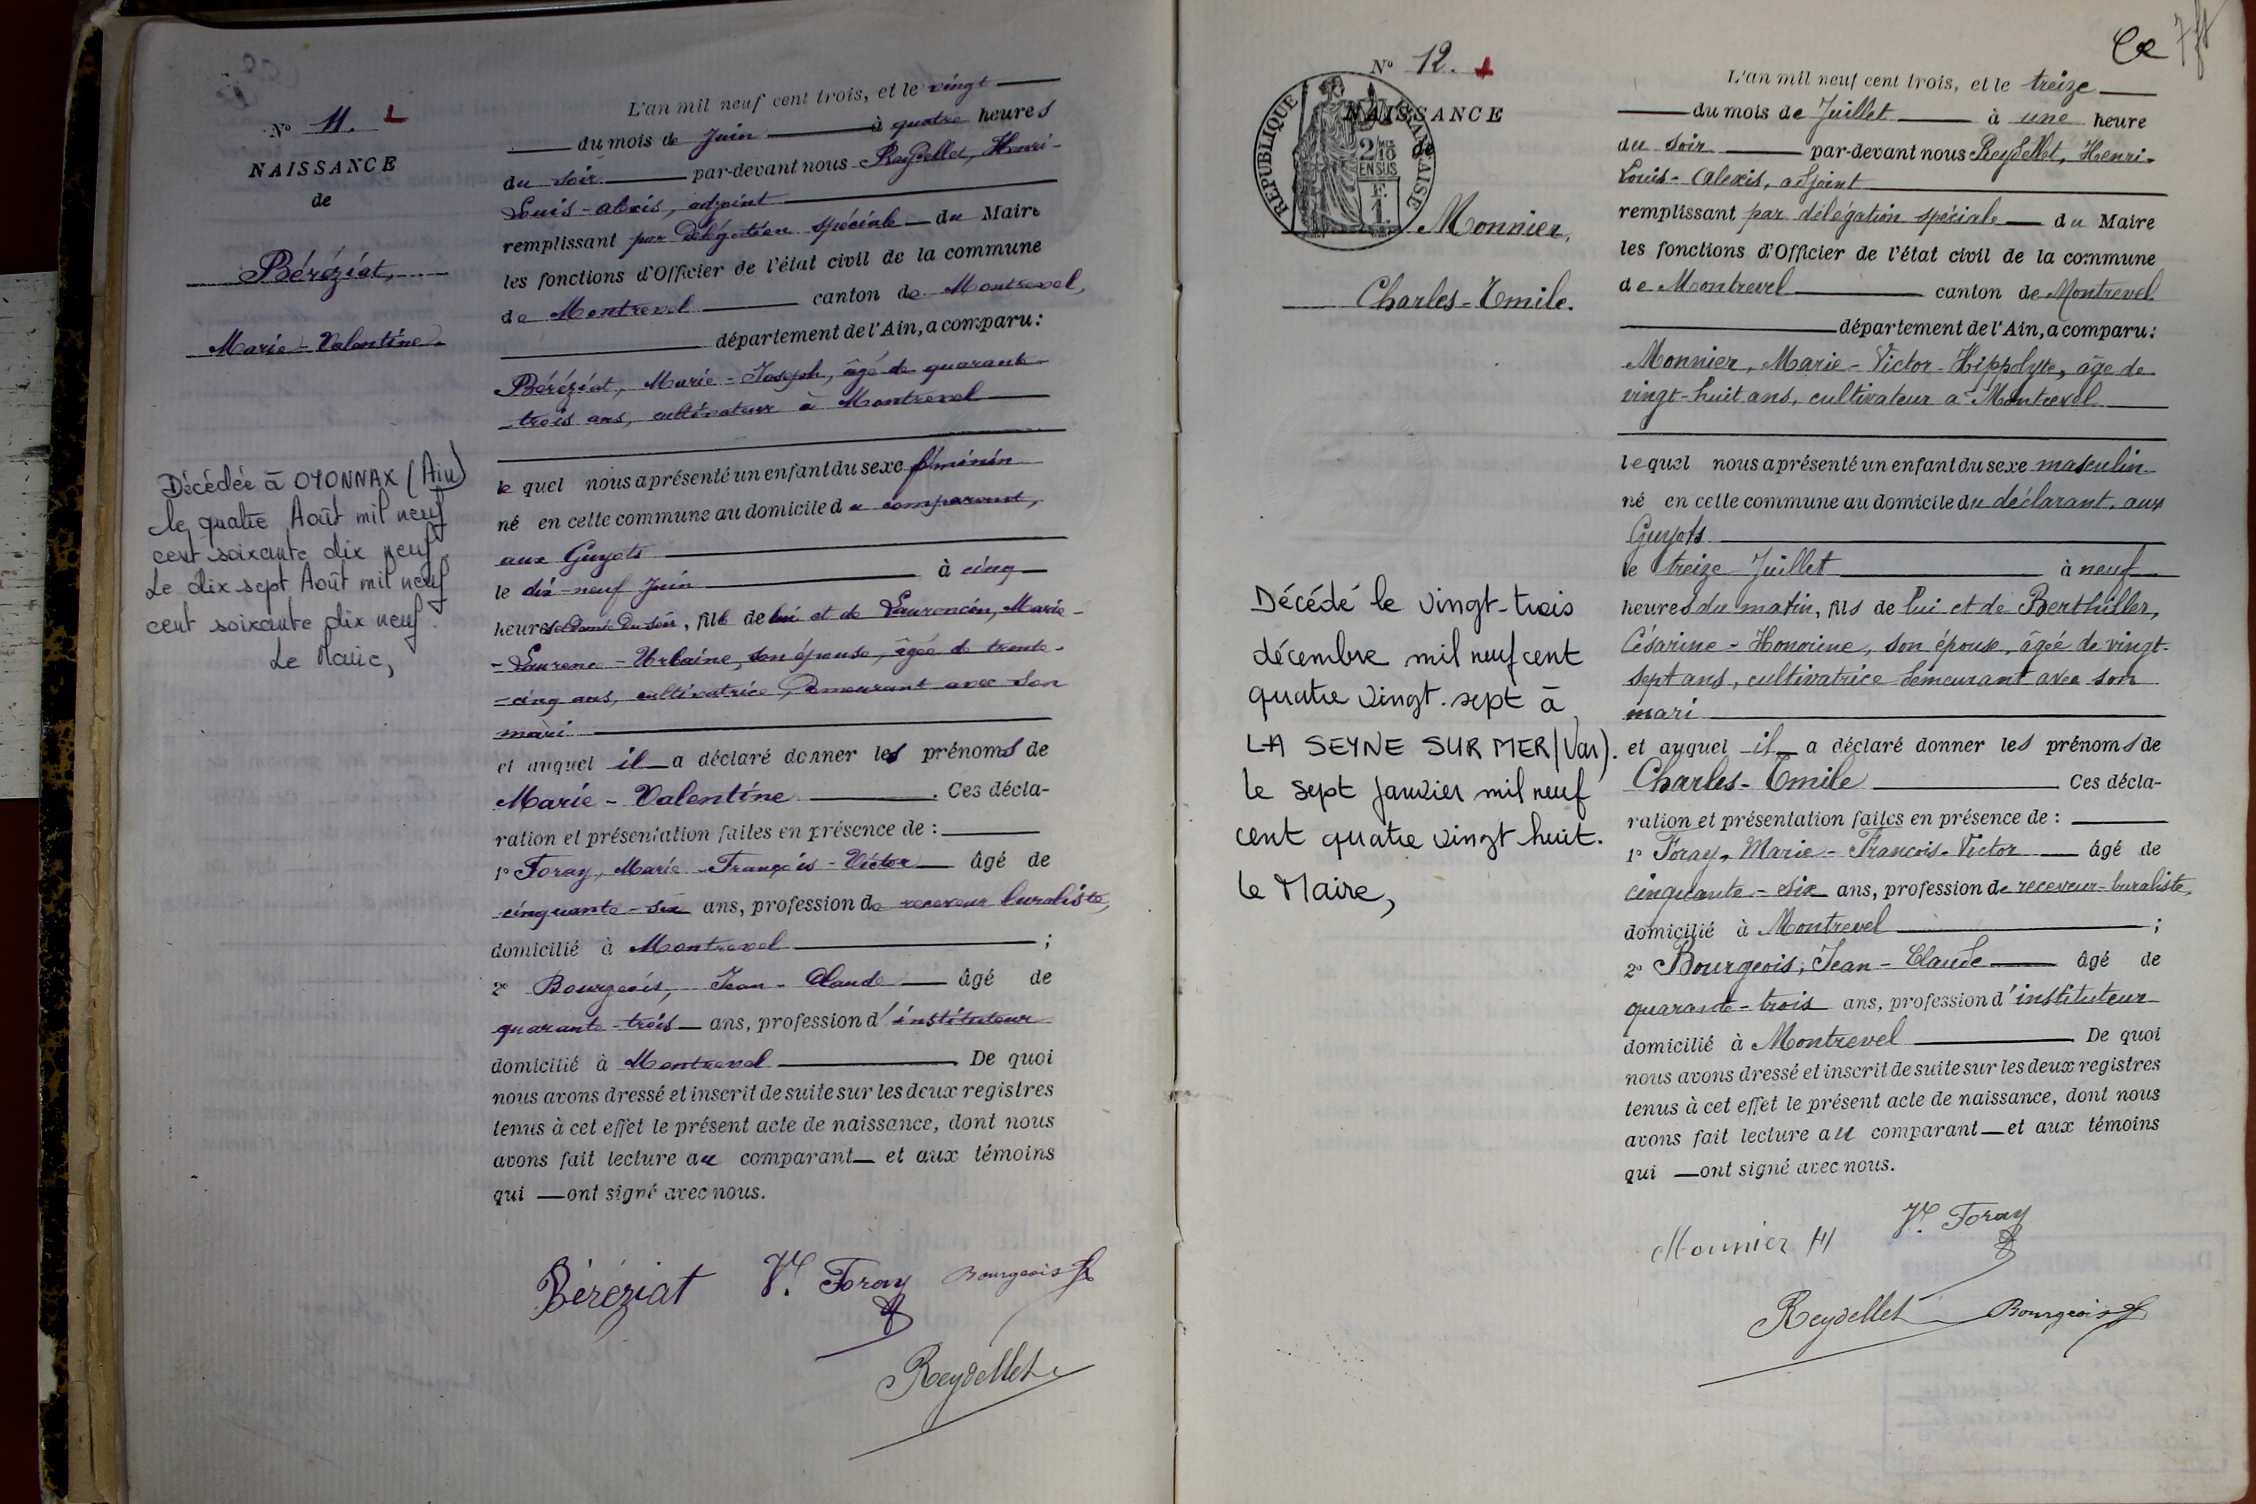 N° 11.
NAISSANCE
de
Béréziat,
Marie-Valentine.
Décédée à OYONNAX (Ain)
le quatre Août mil neuf
cent soixante dix neuf.
Le dix sept Août mil neuf
cent soixante dix neuf.
Le Maire,
L'an mil neuf cent trois, et le vingt
du mois de Juin à quatre heures
du soir par-devant nous Reydellet, Henri-
Louis-Alexis, adjoint
remplissant par délégation spéciale du Maire
les fonctions d'Officier de l'état civil de la commune
de Montrevel canton de Montrevel,
département de l'Ain, a comparu:
Béréziat, Marie-Joseph, âgé de quarante
trois ans, cultivateur à Montrevel
le quel nous a présenté un enfant du sexe féminin
né en cette commune au domicile du comparant,
aux Guyots
le dix-neuf Juin à cinq
heures du soir, fille de lui et de Laurencin, Marie-
-Laurence-Urbaine, son épouse, âgée de trente-
-cinq ans, cultivatrice, demeurant avec son
mari
et auquel il a déclaré donner les prénoms de
Marie-Valentine. Ces décla-
ration et présentation faites en présence de:
1° Foray, Marie-François-Victor âgé de
cinquante-six ans, profession de receveur buraliste,
domicilié à Montrevel;
2° Bourgeois, Jean-Claude âgé de
quarante-trois ans, profession d'instituteur
domicilié à Montrevel De quoi
nous avons dressé et inscrit de suite sur les deux registres
tenus à cet effet le présent acte de naissance, dont nous
avons fait lecture au comparant et aux témoins
qui ont signé avec nous.
Béréziat Vr. Foray Bourgeois
Reydellet
N° 12.
NAISSANCE
de
RÉPUBLIQUE FRANÇAISE
2/10
EN SUS
F.
1.
Monnier,
Charles-Emile.
Décédé le vingt-trois
décembre mil neuf cent
quatre vingt. sept à
LA SEYNE SUR MER (Var).
le sept janvier mil neuf
cent quatre vingt huit.
Le Maire,
L'an mil neuf cent trois, et le treize
du mois de Juillet à une heure
du soir par-devant nous Reydellet, Henri-
Louis-Alexis, adjoint
remplissant par délégation spéciale du Maire
les fonctions d'Officier de l'état civil de la commune
de Montrevel canton de Montrevel
département de l'Ain, a comparu:
Monnier, Marie-Victor-Hippolyte, âgé de
vingt-huit ans, cultivateur à Montrevel
lequel nous a présenté un enfant du sexe masculin
né en cette commune au domicile du déclarant, aux
Guyots
le treize Juillet à neuf
heures du matin, fils de lui et de Berthiller,
Césarine-Honorine, son épouse, âgée de vingt-
sept ans, cultivatrice demeurant avec son
mari
et auquel il a déclaré donner les prénoms de
Charles-Emile Ces décla-
ration et présentation faites en présence de:
1° Foray, Marie-François-Victor âgé de
cinquante-six ans, profession de receveur-buraliste,
domicilié à Montrevel;
2° Bourgeois, Jean-Claude âgé de
quarante-trois ans, profession d'instituteur
domicilié à Montrevel De quoi
nous avons dressé et inscrit de suite sur les deux registres
tenus à cet effet le présent acte de naissance, dont nous
avons fait lecture au comparant et aux témoins
qui ont signé avec nous.
Monnier H Vr. Foray
Reydellet Bourgeois